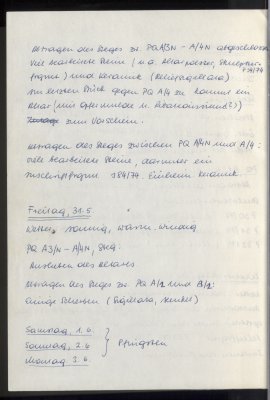 Abtragen des Steges zw. PQ A/3N - A/4N abgeschlossen
viele bearbeitete Steine (u. a. Altarpolster,
fragm.) und Keramik
783/74
im letzten Stück gegen PQ A/4 zu kommt ein
Altar (mit Opfermulde u.
zum Vorschein.
Abtragen des Steges zwischen PQ A/4N und A/4:
viele bearbeitete Steine, darunter ein
Inschriftfragm. 784/74. Einheim. Keramik.
Freitag, 31.5.
Wetter: sonnig, warm, windig
PQ A3/N - A/4N, Steg:
Ausheben des Altares
Abtragen des Steges zw. PQ A/2 und B/2:
Einige Scherben (Sigillata, Henkel)
Samstag, 1. 6.
Sonntag, 2. 6. } Pfingsten
Montag, 3. 6.